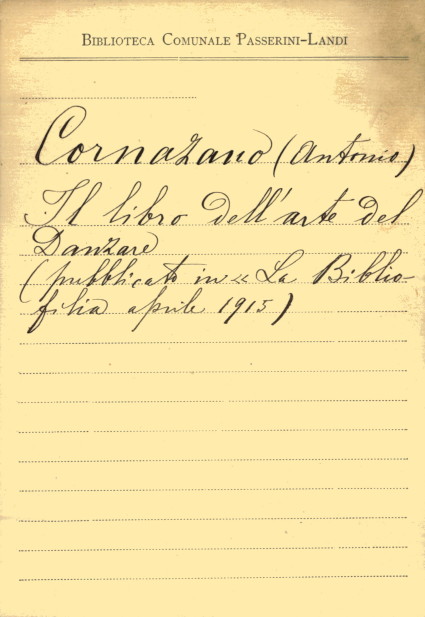 Biblioteca Comunale Passerini-Landi
Cornazano (Antonio)
Il libro dell'arte del
Danzare
(pubblicato in « La Biblio-
filia aprile 1915)